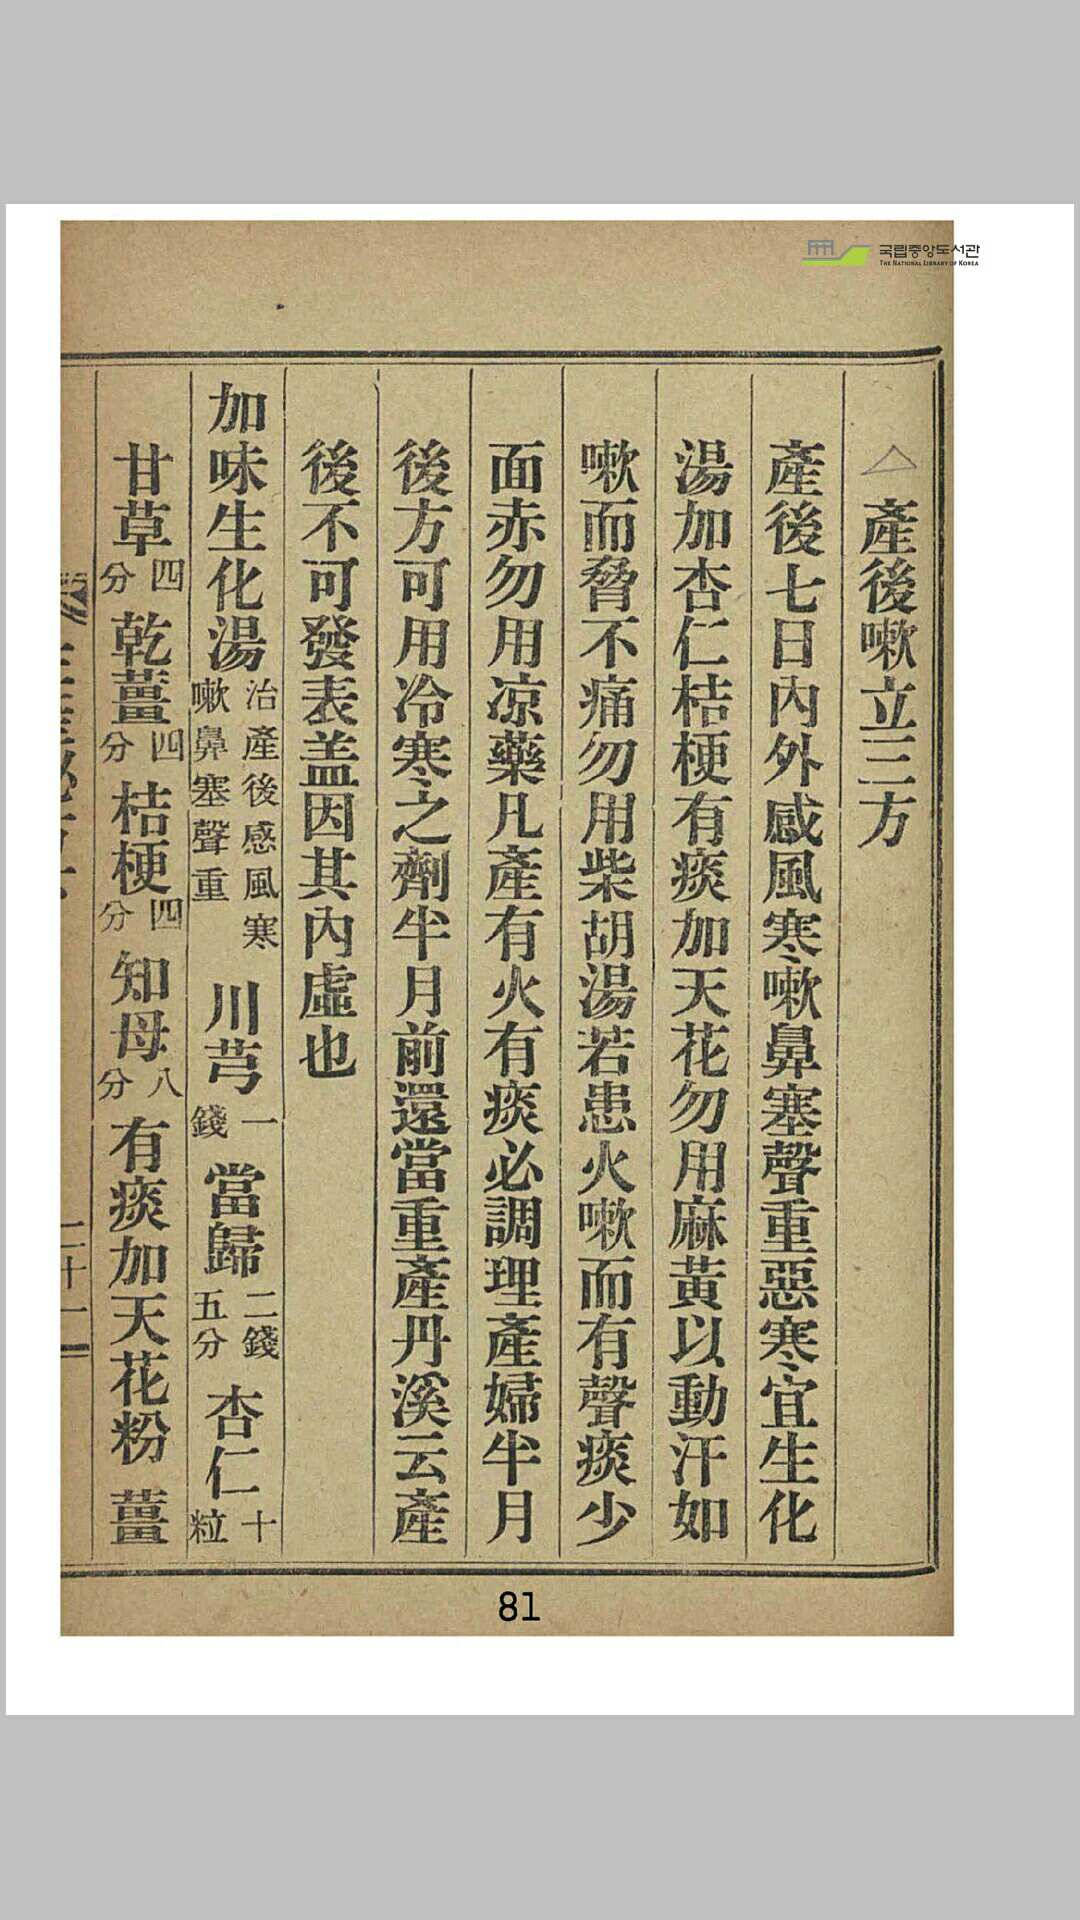 국립중앙도서관
THE NATIONAL LIBRARY OF KOREA
△產後嗽立三方
產後七日內外感風寒嗽鼻塞聲重惡寒宜生化
湯加杏仁桔梗有痰加天花勿用麻黃以動汗如
嗽而脅不痛勿用柴胡湯若患火嗽而有聲痰少
面赤勿用凉藥凡產有火有痰必調理產婦半月
後方可用冷寒之劑半月前還當重產丹溪云產
後不可發表盖因其內虛也
加味生化湯 治產後感風寒嗽鼻塞聲重 川芎 一錢 當歸 二錢五分 杏仁 十粒
甘草 四分 乾薑 四分 桔梗 四分 知母 八分 有痰加天花粉 薑
二十一
81